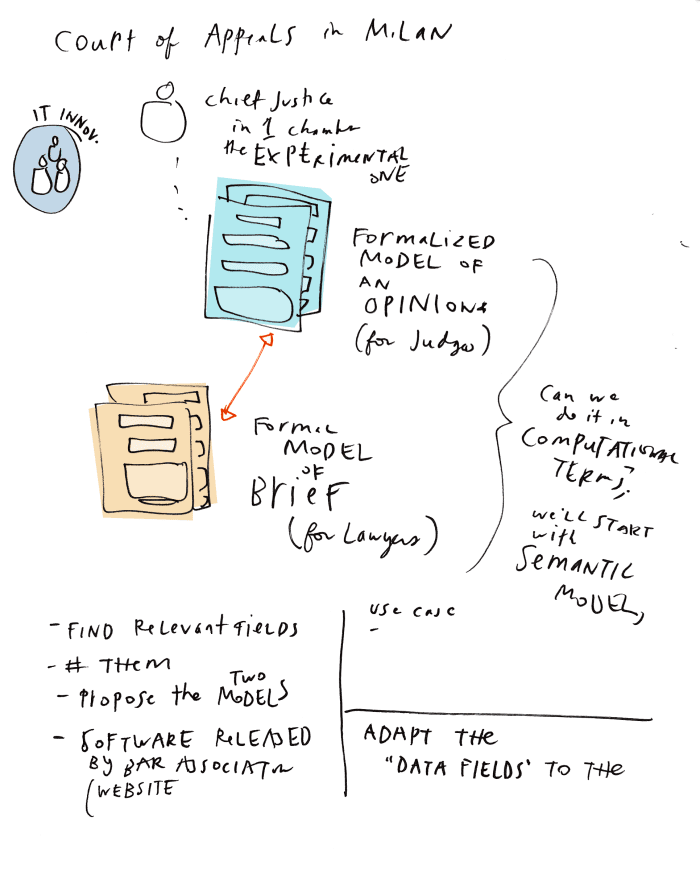 Court of Appeals in Milan
IT INNOV.
chief Justice
in 1 chamber
the EXPERIMENTAL
ONE
FORMALIZED
MODEL OF
AN
OPINIONS
(for Judges)
FORMAL
MODEL
OF
Brief
(for Lawyers)
Can we
do it in
COMPUTATIONAL
TERMS?
we'll START
with
SEMANTIC
MODEL,
- FIND Relevant FIELDS
- # THEM
- Propose the TWO MODELS
- SOFTWARE RELEASED
BY BAR ASSOCIATION
(WEBSITE
use case
-
ADAPT THE
"DATA FIELDS" TO THE